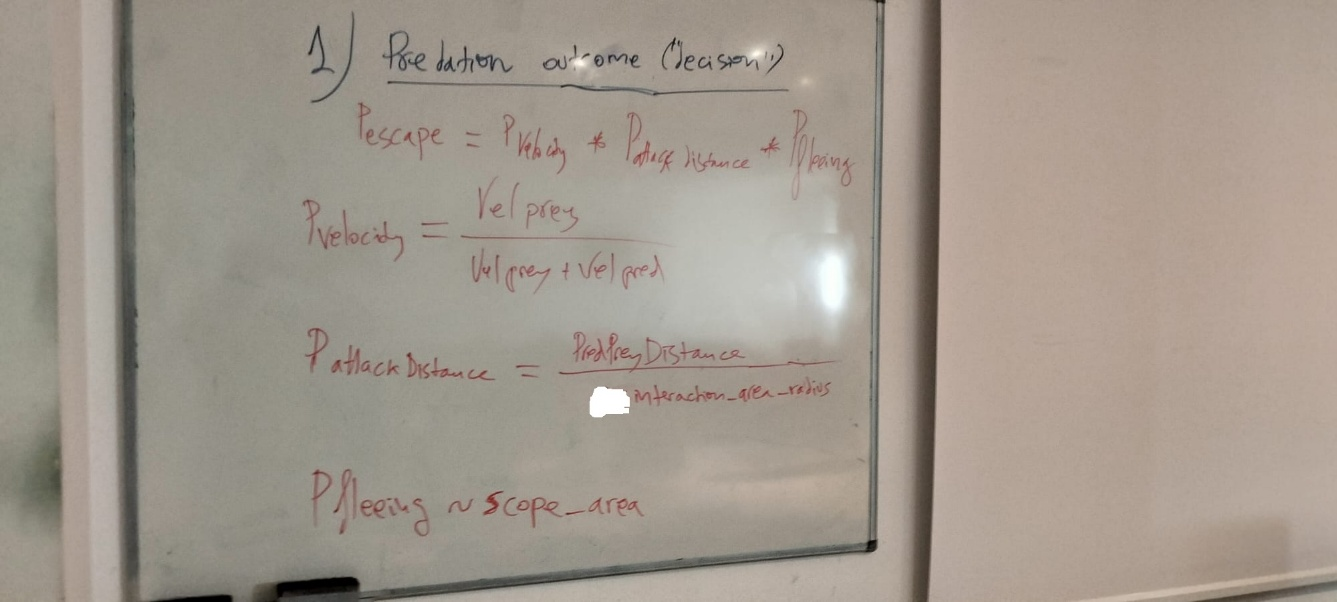 1) Predation outcome ("decision")
Pescape = Pvelocity * Pattack distance * Pfleeing
Pvelocity = Vel prey
Vel prey + Vel pred
PattackDistance = PredPreyDistance
interaction_area_radius
Pfleeing ~ scope_area